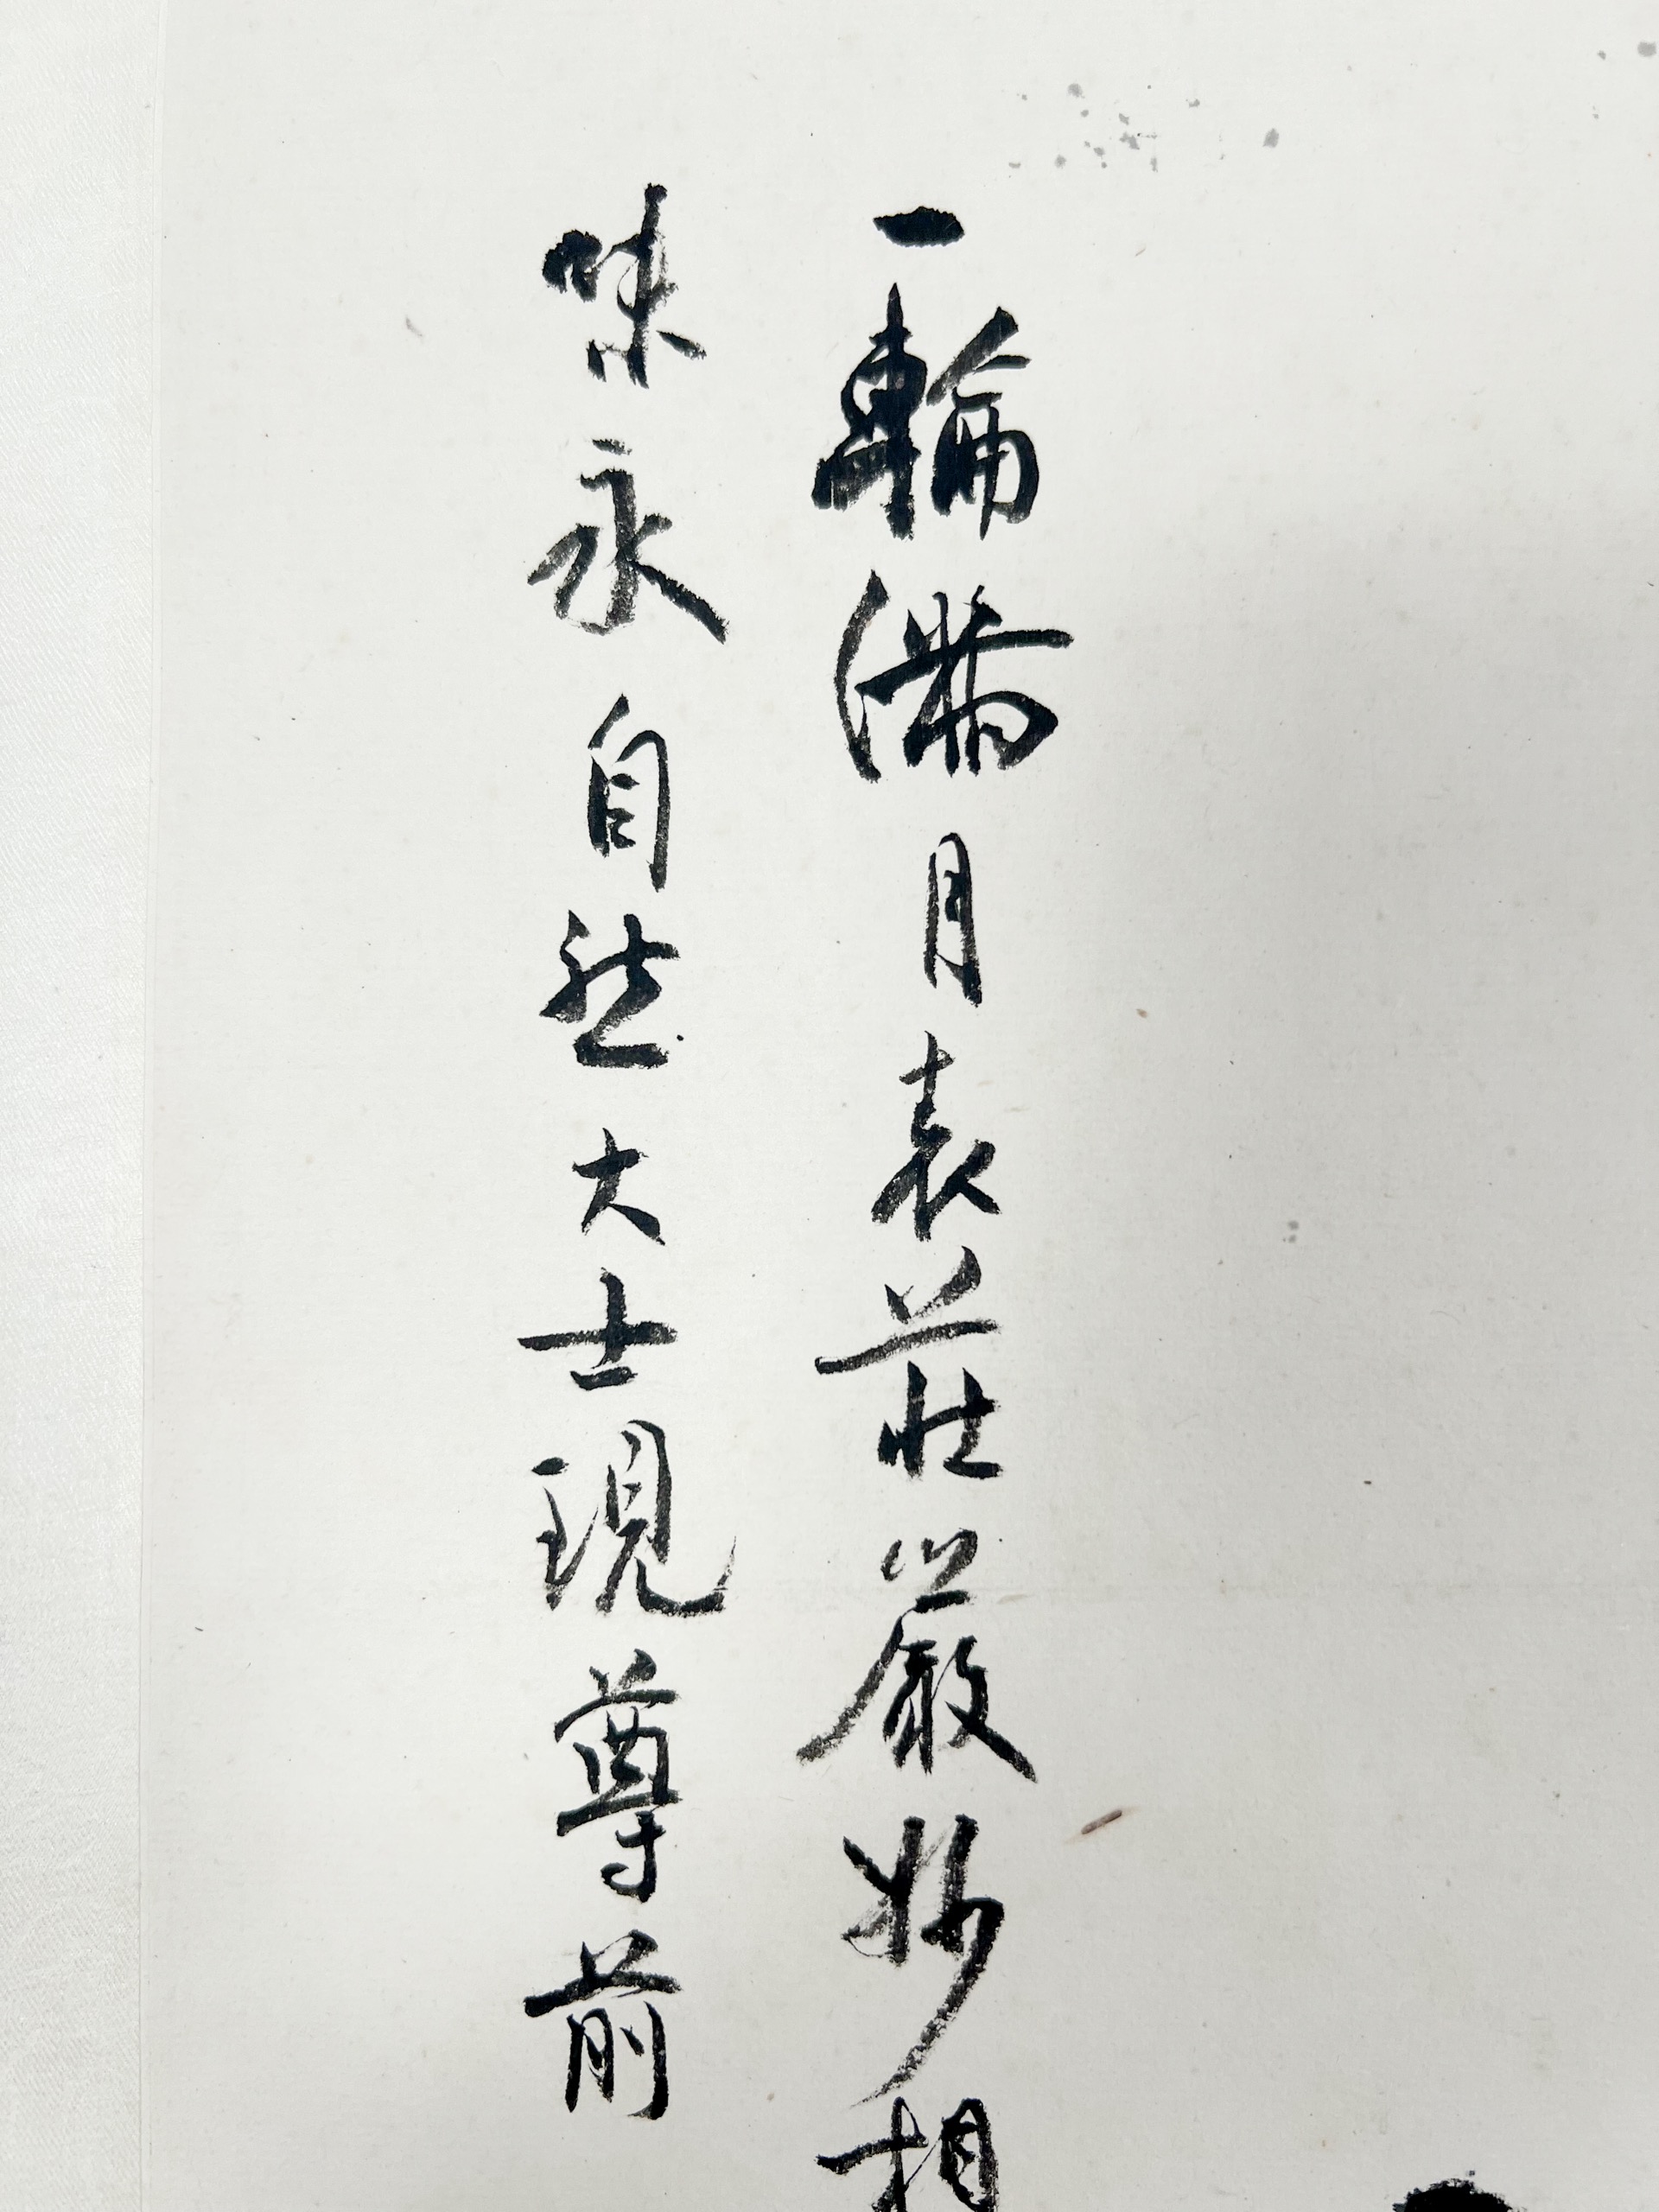 一輪滿月表莊嚴妙相
味永自然大士現尊前